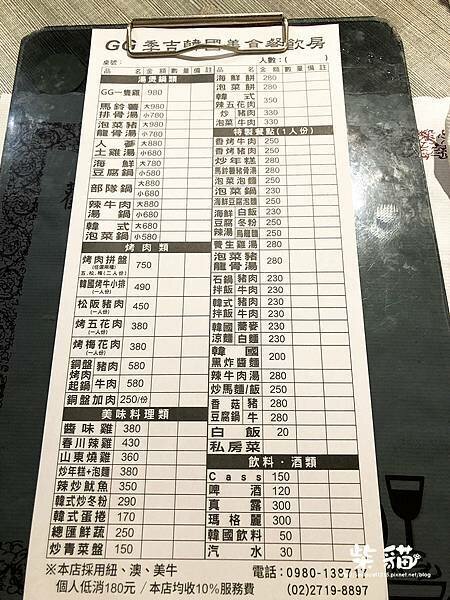 GG 季吉韓國美食餐飲房
桌號：
人數：( )
品名 金額 數量 備註
湯煲鍋類
GG一隻雞 980
馬鈴薯排骨湯 大980 小780
泡菜豬龍骨湯 大980 小780
人蔘土雞湯 大880 小680
海鮮豆腐鍋 大780 小580
部隊鍋 大880 小680
辣牛肉湯鍋 大880 小680
韓式泡菜鍋 大680 小580
烤肉類
烤肉拼盤 (任選兩種) 五.松.梅(二人份) 750
韓國烤牛小排 (一人份) 490
松阪豬肉 (一人份) 450
烤五花肉 (一人份) 380
烤梅花肉 (一人份) 380
銅盤烤肉起鍋 豬肉 580
牛肉 580
銅盤加肉 250/份
美味料理類
醬味雞 380
春川辣雞 430
山東燒雞 360
炒年糕+泡麵 380
辣炒魷魚 350
韓式炒冬粉 290
韓式蛋捲 170
總匯鮮蔬 250
炒青菜盤 150
品名 金額 數量 備註
海鮮餅 280
泡菜餅 280
韓式辣五花肉 350
炒豬肉 330
泡菜牛肉 330
特製餐點(1人份)
香烤牛肉 250
香烤豬肉 250
炒年糕 280
馬鈴薯豬骨湯 280
泡菜泡麵 250
泡菜鍋 230
海鮮豆腐泡麵 250
海鮮豆腐辣湯 白飯 230
冬粉 250
烏龍麵 250
養生雞湯 280
泡菜豬龍骨湯 280
石鍋拌飯 豬肉 230
牛肉 230
韓式拌飯 豬肉 230
牛肉 230
韓國涼麵 蕎麥 230
白麵 230
韓國黑炸醬麵 200
辣牛肉湯 280
炒馬麵/飯 250
香菇豆腐鍋 豬 280
牛 280
白飯 20
私房菜
飲料·酒類
Cass 150
啤酒 120
真露 300
瑪格麗 300
韓國飲料 50
汽水 30
※本店採用紐、澳、美牛
個人低消180元 / 本店均收10%服務費
電話：0980-138717
(02)2719-8897
柴貓